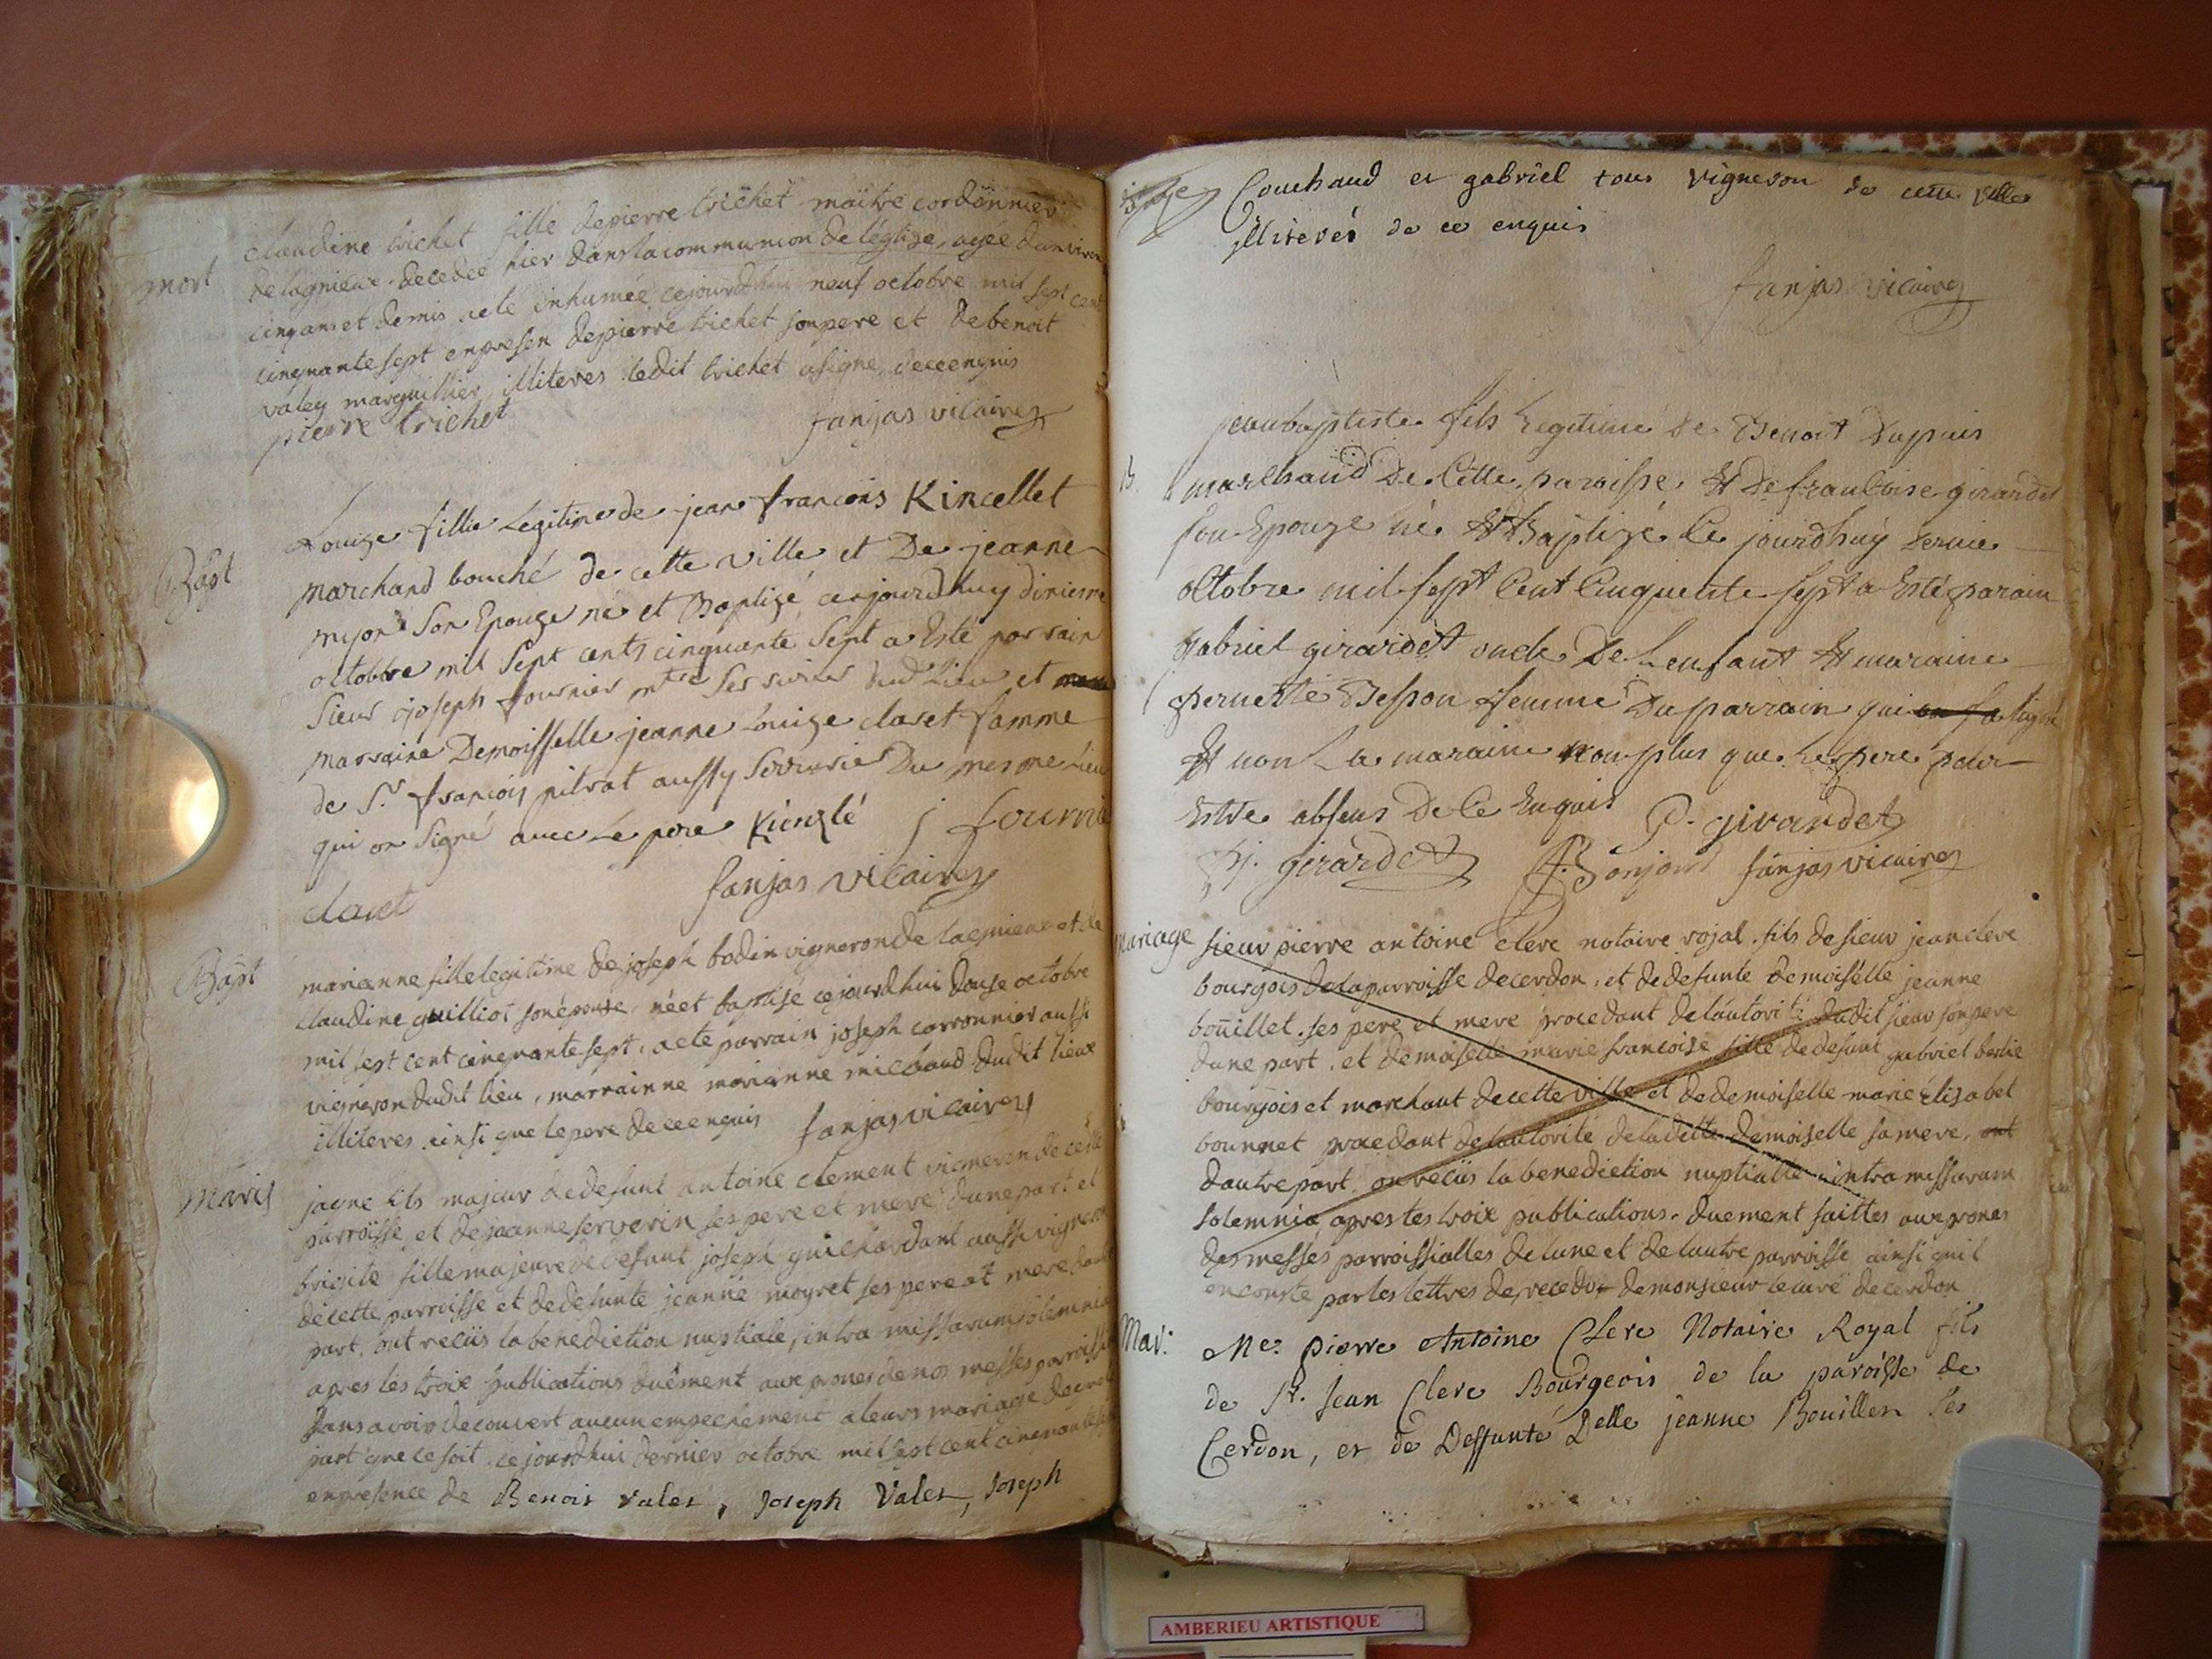 mort
claudine trichet fille depierre trichet maitre cordonnier
delagnieux. decedée hier dans la communion de léglise, agée danviron
cinq ans et demis aeté inhumée cejourdhui neuf octobre mil sept cent
cinquante sept enpresen depierre trichet son pere et debenoit
valey marguillier, illiteres ledit trichet asigne deceenquis
pierre trichet fanjas vicaire
Bapt
Louize fillie Legitime de jean francois Kincellet
marchand bouché de cette ville et De jeanne
myon Son Epouze né et Baptizé cejourdhuy diniesme
octobbre mil Sept cents cinquante Sept a Esté parrain
Sieur joseph fournier mtre Serrurier dud Lieu et
marraine Demoisselle jeanne Louize claret famme
de Sr françois pitrat aussy Serrurie Du mesme Lieu
qui on Signé avec Le pere Kienzlé j fournie
claret fanjas vicaire
Bapt
marianne fille legitime de joseph bodin vigneron de lagnieux et de
claudine guilliot son épouse, né et baptisé cejourdhui douse octobre
mil sept cent cinquante sept, aeté parrain joseph carronnier aussi
vigneron dudit lieu, marrainne marianne michaud dudit lieux
illiteres ainsi que le pere deceenquis fanjas vicaire
Mariag
jaqne fils majeur dedefunt antoine clement vigneron de cette
parroisse et dejeanne serverin ses pere et mere dune part et
brigite fille majeure dedefunt joseph guichardant aussi vigneron
decette parroisse et dedefunte jeanne moyret ses pere et mere dautre
part, ont reçüs la benediction nuptiale, intra missarum solemnia
apres les troix publications duëment aux prones de nos messes parroissi
sans avoir decouvert aucun empechement a leurs mariage de
part que ce soit. cejourdhui dernier octobre mil sept cent cinquante
enpresence de Benoit valet, Joseph Valet, Joseph
Couchaud et gabriel tous vigneron de cette ville
illiterés de ce enquis
fanjas vicaire
B.
jeanbaptiste fils Legitime De Benoit Dupuis
marchand De Cette paroisse Et De françoise girardet
son Epouze né Et Baptizé Ce jourdhuy dernie
octobre mil sept Cent Cinquente sept a Esté parain
gabriel girardet oncle De Lenfant Et maraine
pernette Tesson femme Du parrain qui signé
Et non La maraine non plus que Le pere pour
Estre absens De Ce Enquis G. girardet
girardet Bonjour fanjas vicaire
Mariage
sieur pierre antoine clerc notaire rojal. fils de sieur jean clerc
bourgois delaparroisse decerdon, et dedefunte demoiselle jeanne
boüillet. ses pere et mere procedant delautorité dudit sieur son pere
dune part, et demoiselle marie francoise fille dedefunt gabriel berlie
bourgois et marchant decette ville et dedemoiselle marie élizabet
bounnet procedant delautorite deladitte demoiselle samere, ont
dautre part. on reçüs la benediction nuptialle intra missarum
solemnia apres tes troix publications. duement faittes aux prones
des messes parroissialles de lune et de lautre parroisse ainsi quil
en conste par les lettres de recedo demonsieur le curé decerdon
Mar:
Me. pierre Antoine Clerc Notaire Royal fils
de Sr. Jean Clerc Bourgeois de la paroisse de
Cerdon, et de Deffunte Delle jeanne Bouillet Ses
AMBERIEU ARTISTIQUE